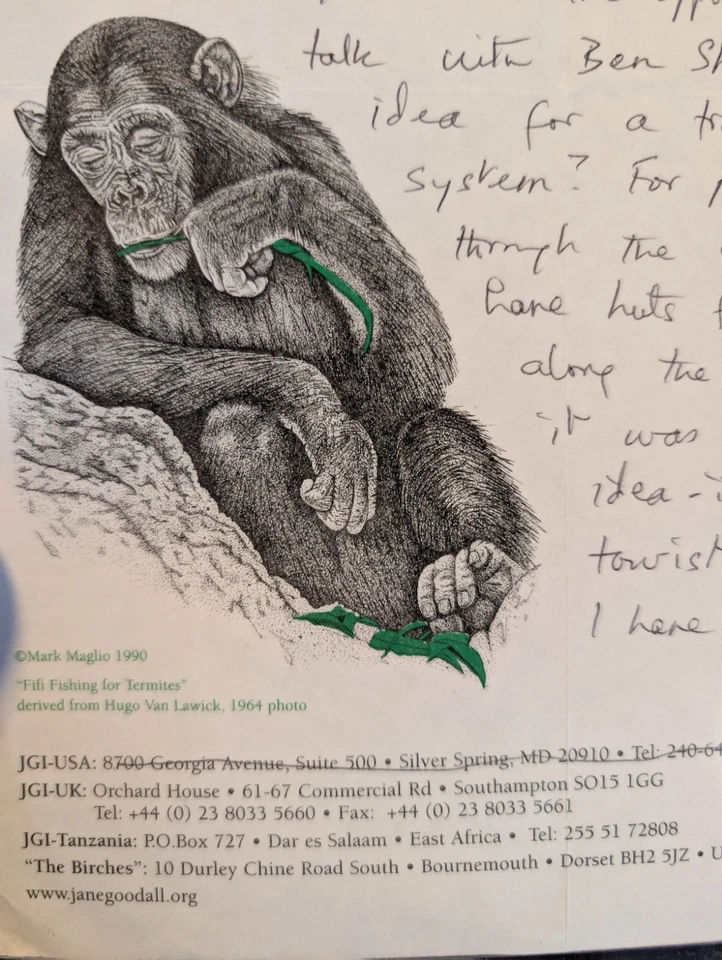 talk with Ben
idea for a
system? For
through the
have huts
along the
it was
idea -
tourist
I have
©Mark Maglio 1990
"Fifi Fishing for Termites"
derived from Hugo Van Lawick, 1964 photo
JGI-USA: 8700 Georgia Avenue, Suite 500 • Silver Spring, MD 20910 • Tel: 240-64
JGI-UK: Orchard House • 61-67 Commercial Rd • Southampton SO15 1GG
Tel: +44 (0) 23 8033 5660 • Fax: +44 (0) 23 8033 5661
JGI-Tanzania: P.O.Box 727 • Dar es Salaam • East Africa • Tel: 255 51 72808
"The Birches": 10 Durley Chine Road South • Bournemouth • Dorset BH2 5JZ • U
www.janegoodall.org